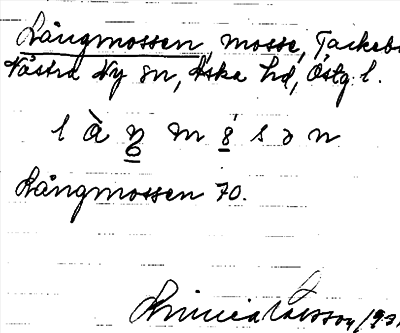 Långmossen, mosse, Tackebo
Västra Ny sn, Aska hd, Östg. l.
l à ŋ m ó s ə n
Långmossen 70.
Linnea Larsson, 193